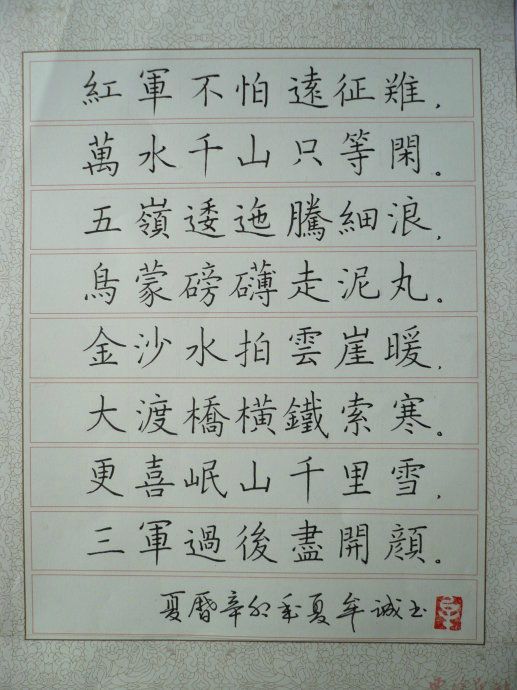 紅軍不怕遠征難，
萬水千山只等閑。
五嶺逶迤騰細浪，
鳥蒙磅礴走泥丸。
金沙水拍雲崖暖，
大渡橋橫鐵索寒。
更喜岷山千里雪，
三軍過後盡開顏。
夏曆辛卯季夏牟誠书